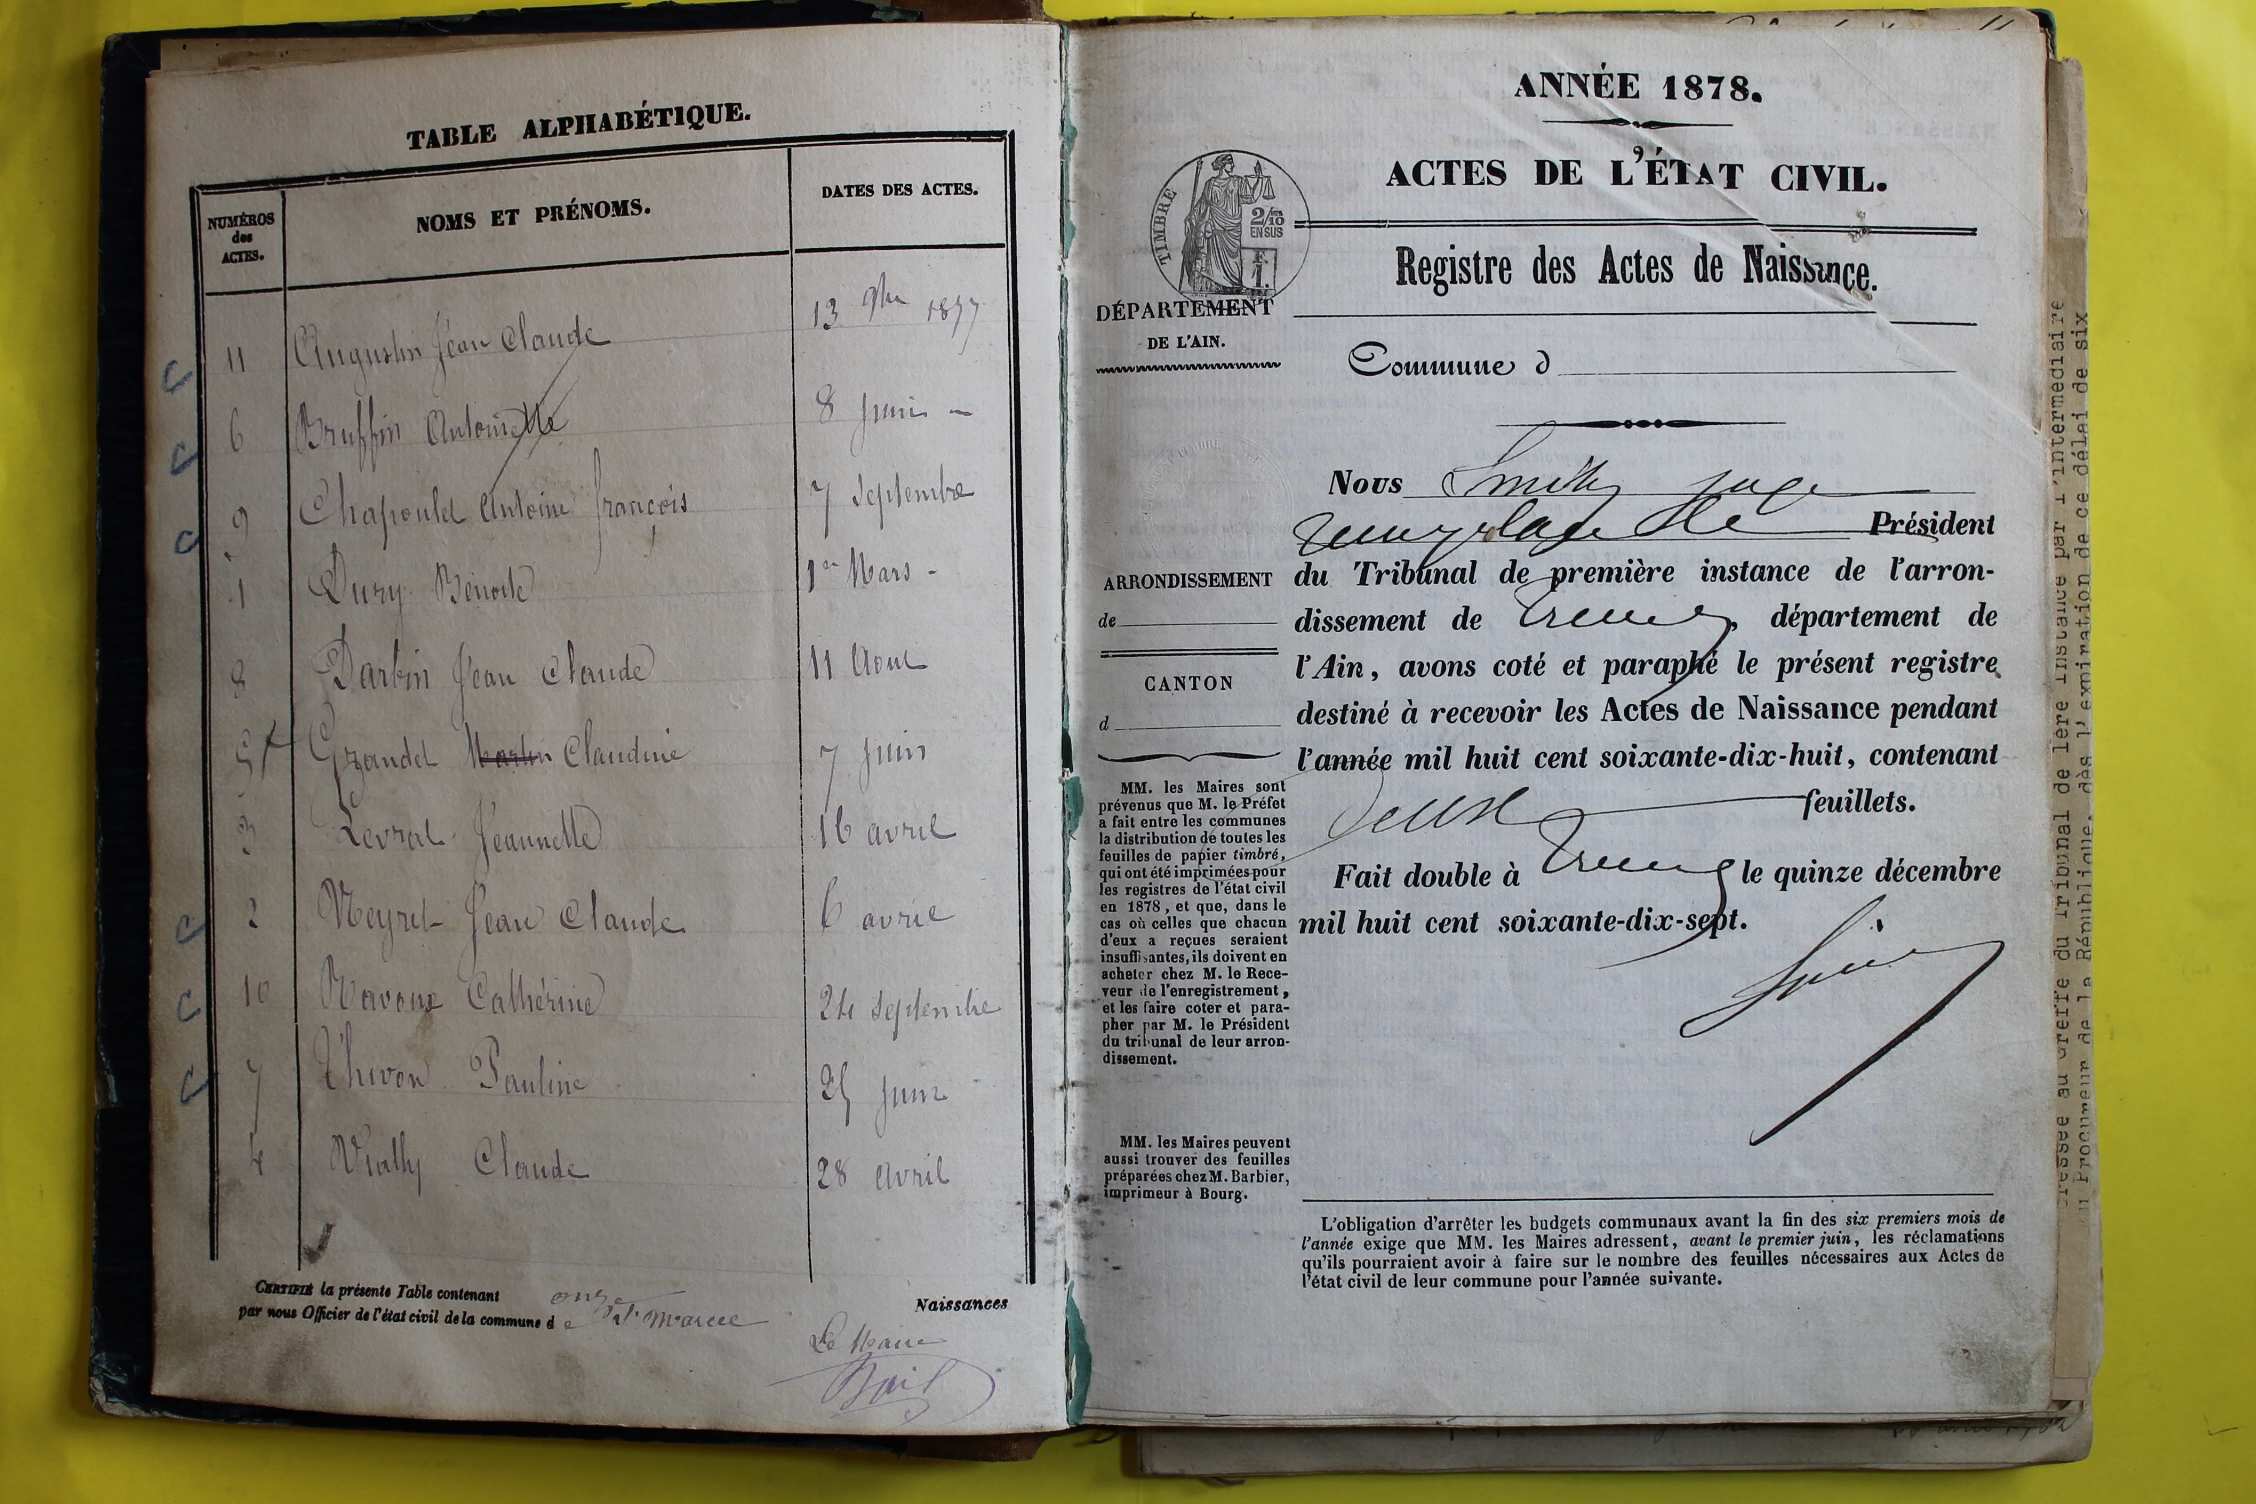 TABLE ALPHABÉTIQUE.
NUMÉROS des ACTES. NOMS ET PRÉNOMS. DATES DES ACTES.
11 Augustin Jean Claude 13 9bre 1877
6 Bruffin Antoinette 8 juin -
9 Antoine François 7 septembre
1 Dury Benoite 1er Mars -
8 Jean Claude 11 Aout
5 Grandet Martin Claudine 7 juin
3 Levrat Jeannette 16 avril
2 Neyret Jean Claude 6 avril
10 Ravoux Cathérine 24 septembre
7 Thivon Pauline 25 juin
4 Vially Claude 28 avril
CERTIFIÉ la présente Table contenant onze Naissances
par nous Officier de l'état civil de la commune de St Marcel
Le Maire
ANNÉE 1878.
ACTES DE L'ÉTAT CIVIL.
TIMBRE
2/10 EN SUS
F. 1.
Registre des Actes de Naissance.
DÉPARTEMENT
DE L'AIN.
Commune d
Nous Smith juge
Président
ARRONDISSEMENT
de
CANTON
d
du Tribunal de première instance de l'arron-
dissement de Trévoux, département de
l'Ain, avons coté et paraphé le présent registre
destiné à recevoir les Actes de Naissance pendant
l'année mil huit cent soixante-dix-huit, contenant
deux feuillets.
Fait double à Trévoux le quinze décembre
mil huit cent soixante-dix-sept.
MM. les Maires sont
prévenus que M. le Préfet
a fait entre les communes
la distribution de toutes les
feuilles de papier timbré,
qui ont été imprimées pour
les registres de l'état civil
en 1878, et que, dans le
cas où celles que chacun
d'eux a reçues seraient
insuffisantes, ils doivent en
acheter chez M. le Rece-
veur de l'enregistrement,
et les faire coter et para-
pher par M. le Président
du tribunal de leur arron-
dissement.
MM. les Maires peuvent
aussi trouver des feuilles
préparées chez M. Barbier,
imprimeur à Bourg.
L'obligation d'arrêter les budgets communaux avant la fin des six premiers mois de
l'année exige que MM. les Maires adressent, avant le premier juin, les réclamations
qu'ils pourraient avoir à faire sur le nombre des feuilles nécessaires aux Actes de
l'état civil de leur commune pour l'année suivante.
au Greffe du Tribunal de 1ère Instance par l'intermédiaire
Procureur de la République, dès l'expiration de ce délai de six